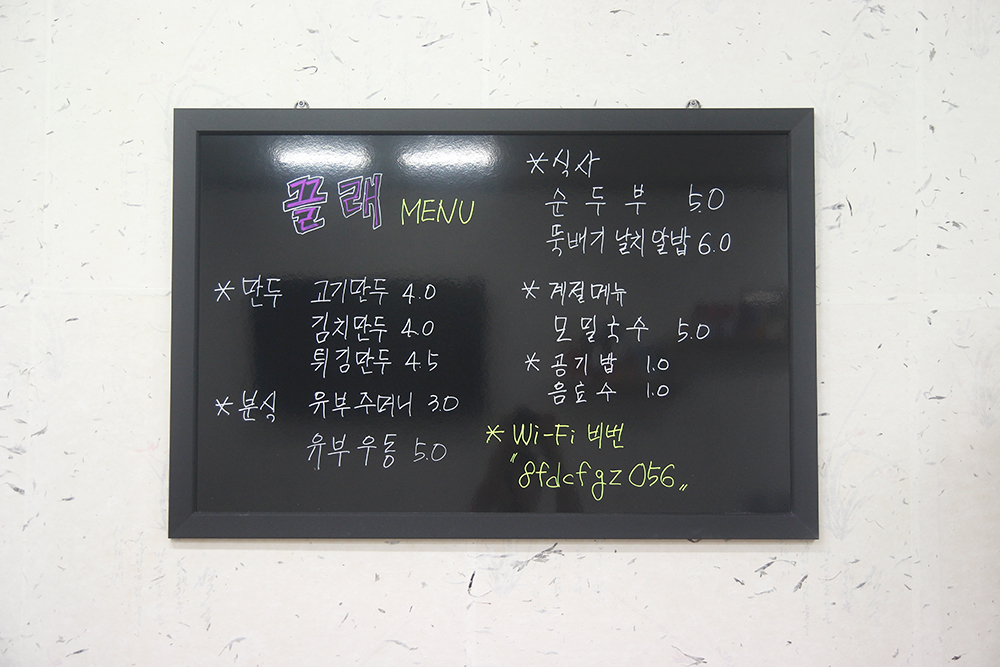 끌래 MENU
* 만두 고기만두 4.0
김치만두 4.0
튀김만두 4.5
* 분식 유부주머니 3.0
유부우동 5.0
* 식사
순두부 5.0
뚝배기 날치알밥 6.0
* 계절메뉴
모밀국수 5.0
* 공기밥 1.0
음료수 1.0
* Wi-Fi 비번
"8fdcfgz056"